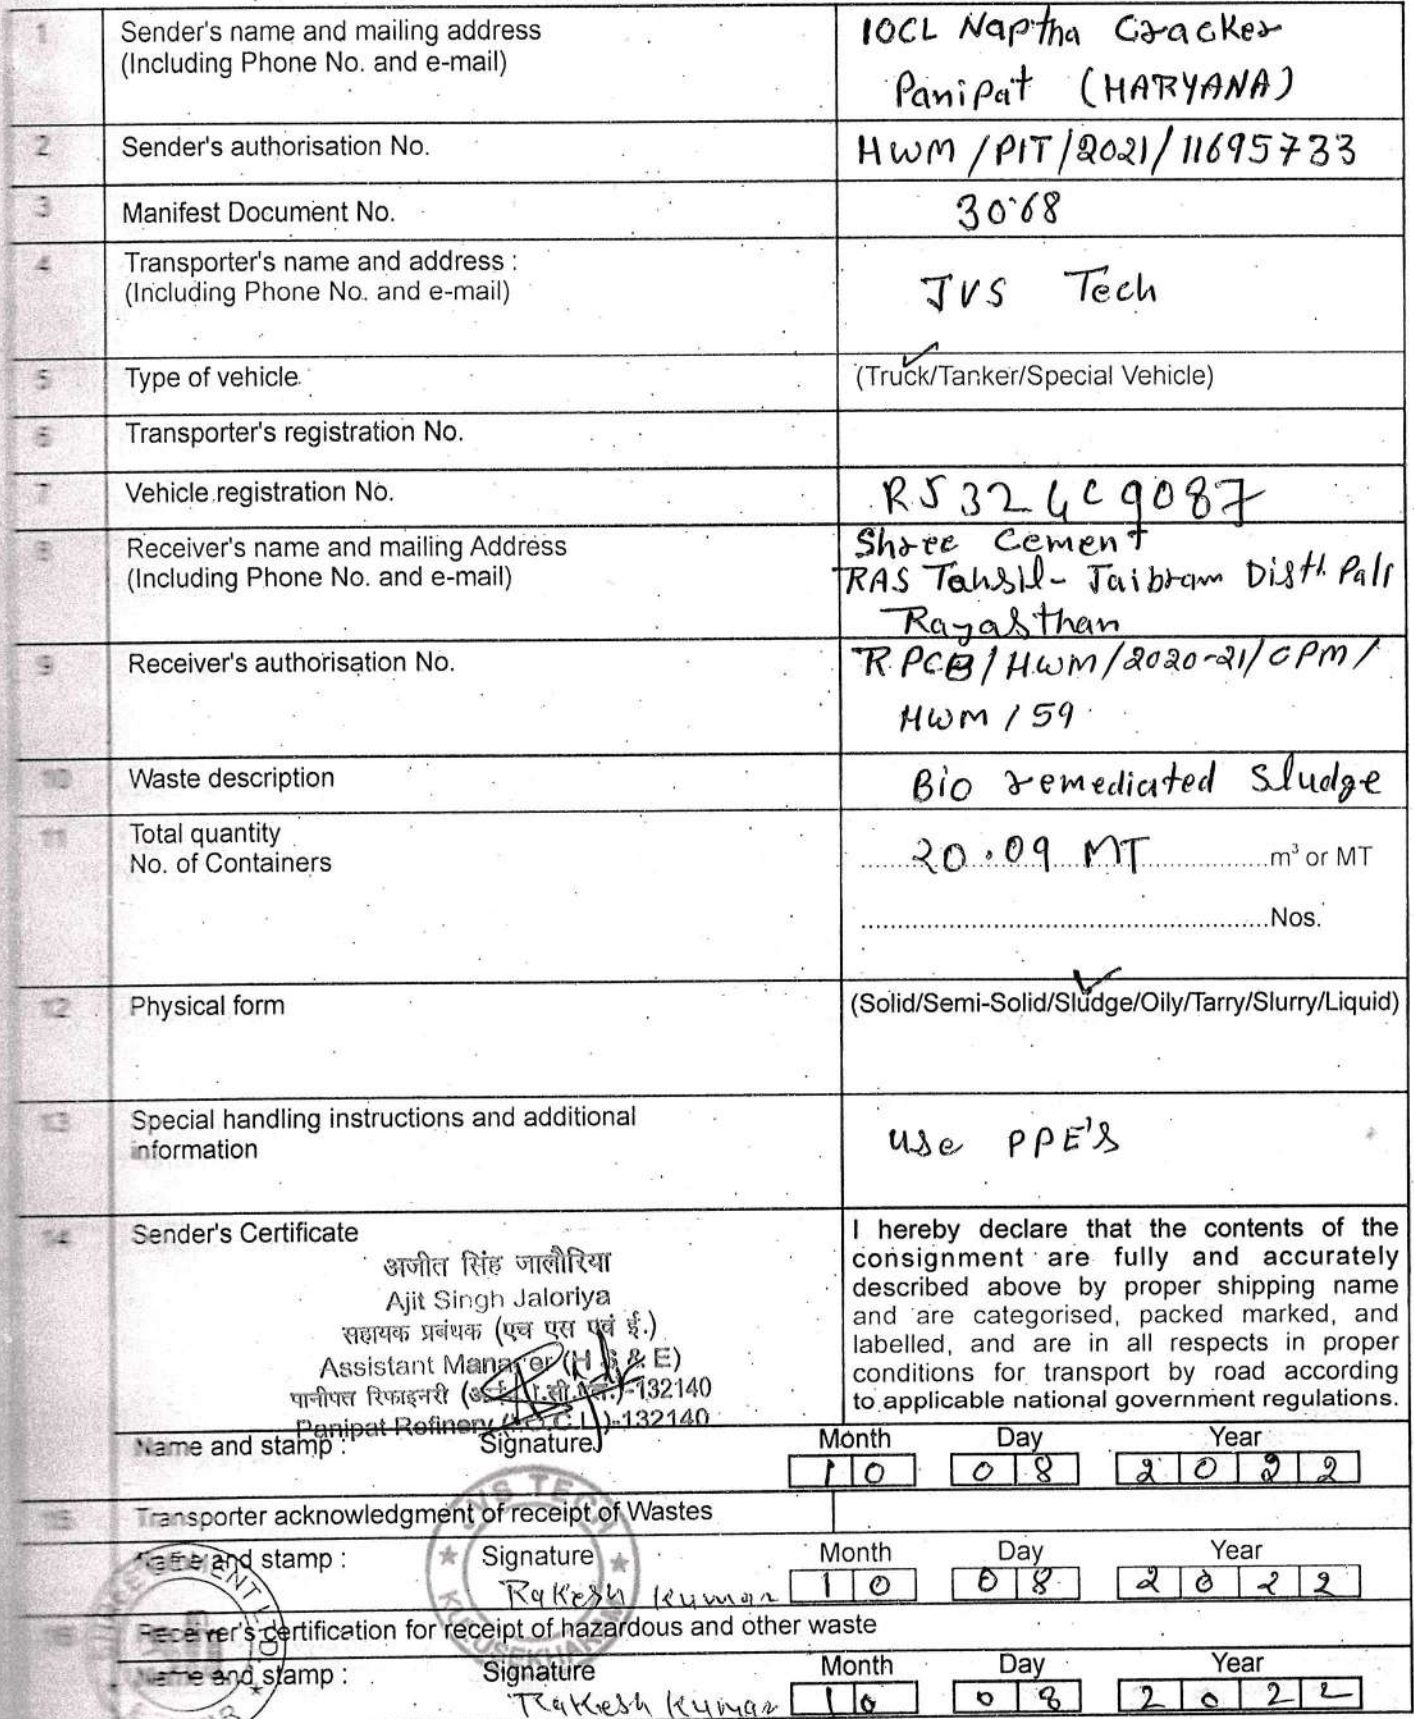 1 Sender's name and mailing address
(Including Phone No. and e-mail)
IOCL Naptha Cracker
Panipat (HARYANA)
2 Sender's authorisation No.
HWM/PIT/2021/11695733
3 Manifest Document No.
30.68
4 Transporter's name and address :
(Including Phone No. and e-mail)
JVS Tech
5 Type of vehicle
(Truck/Tanker/Special Vehicle)
6 Transporter's registration No.
7 Vehicle registration No.
8 Receiver's name and mailing Address
(Including Phone No. and e-mail)
Shree Cement
RAS Tahsil- Jaibram Distt. Pali
Rayasthan
9 Receiver's authorisation No.
RPCB/HWM/2020-21/CPM/
HWM/59
10 Waste description
Bio remediated Sludge
11 Total quantity
No. of Containers
20.09 MT m³ or MT
Nos.
12 Physical form
(Solid/Semi-Solid/Sludge/Oily/Tarry/Slurry/Liquid)
13 Special handling instructions and additional
information
Use PPE's
14 Sender's Certificate
अजीत सिंह जालौरिया
Ajit Singh Jaloriya
सहायक प्रबंधक (एच एस एवं ई.)
Assistant Manager (H S & E)
पानीपत रिफाइनरी (आई.ओ.सी.एल.)-132140
Panipat Refinery (I.O.C.L.)-132140
I hereby declare that the contents of the
consignment are fully and accurately
described above by proper shipping name
and are categorised, packed marked, and
labelled, and are in all respects in proper
conditions for transport by road according
to applicable national government regulations.
Name and stamp : Signature Month Day Year
10 08 2022
15 Transporter acknowledgment of receipt of Wastes
JVS TECH
Name and stamp : Signature Month Day Year
Rakesh Kumar 10 08 2022
16 Receiver's certification for receipt of hazardous and other waste
Name and stamp : Signature Month Day Year
Rakesh Kumar 10 08 2022